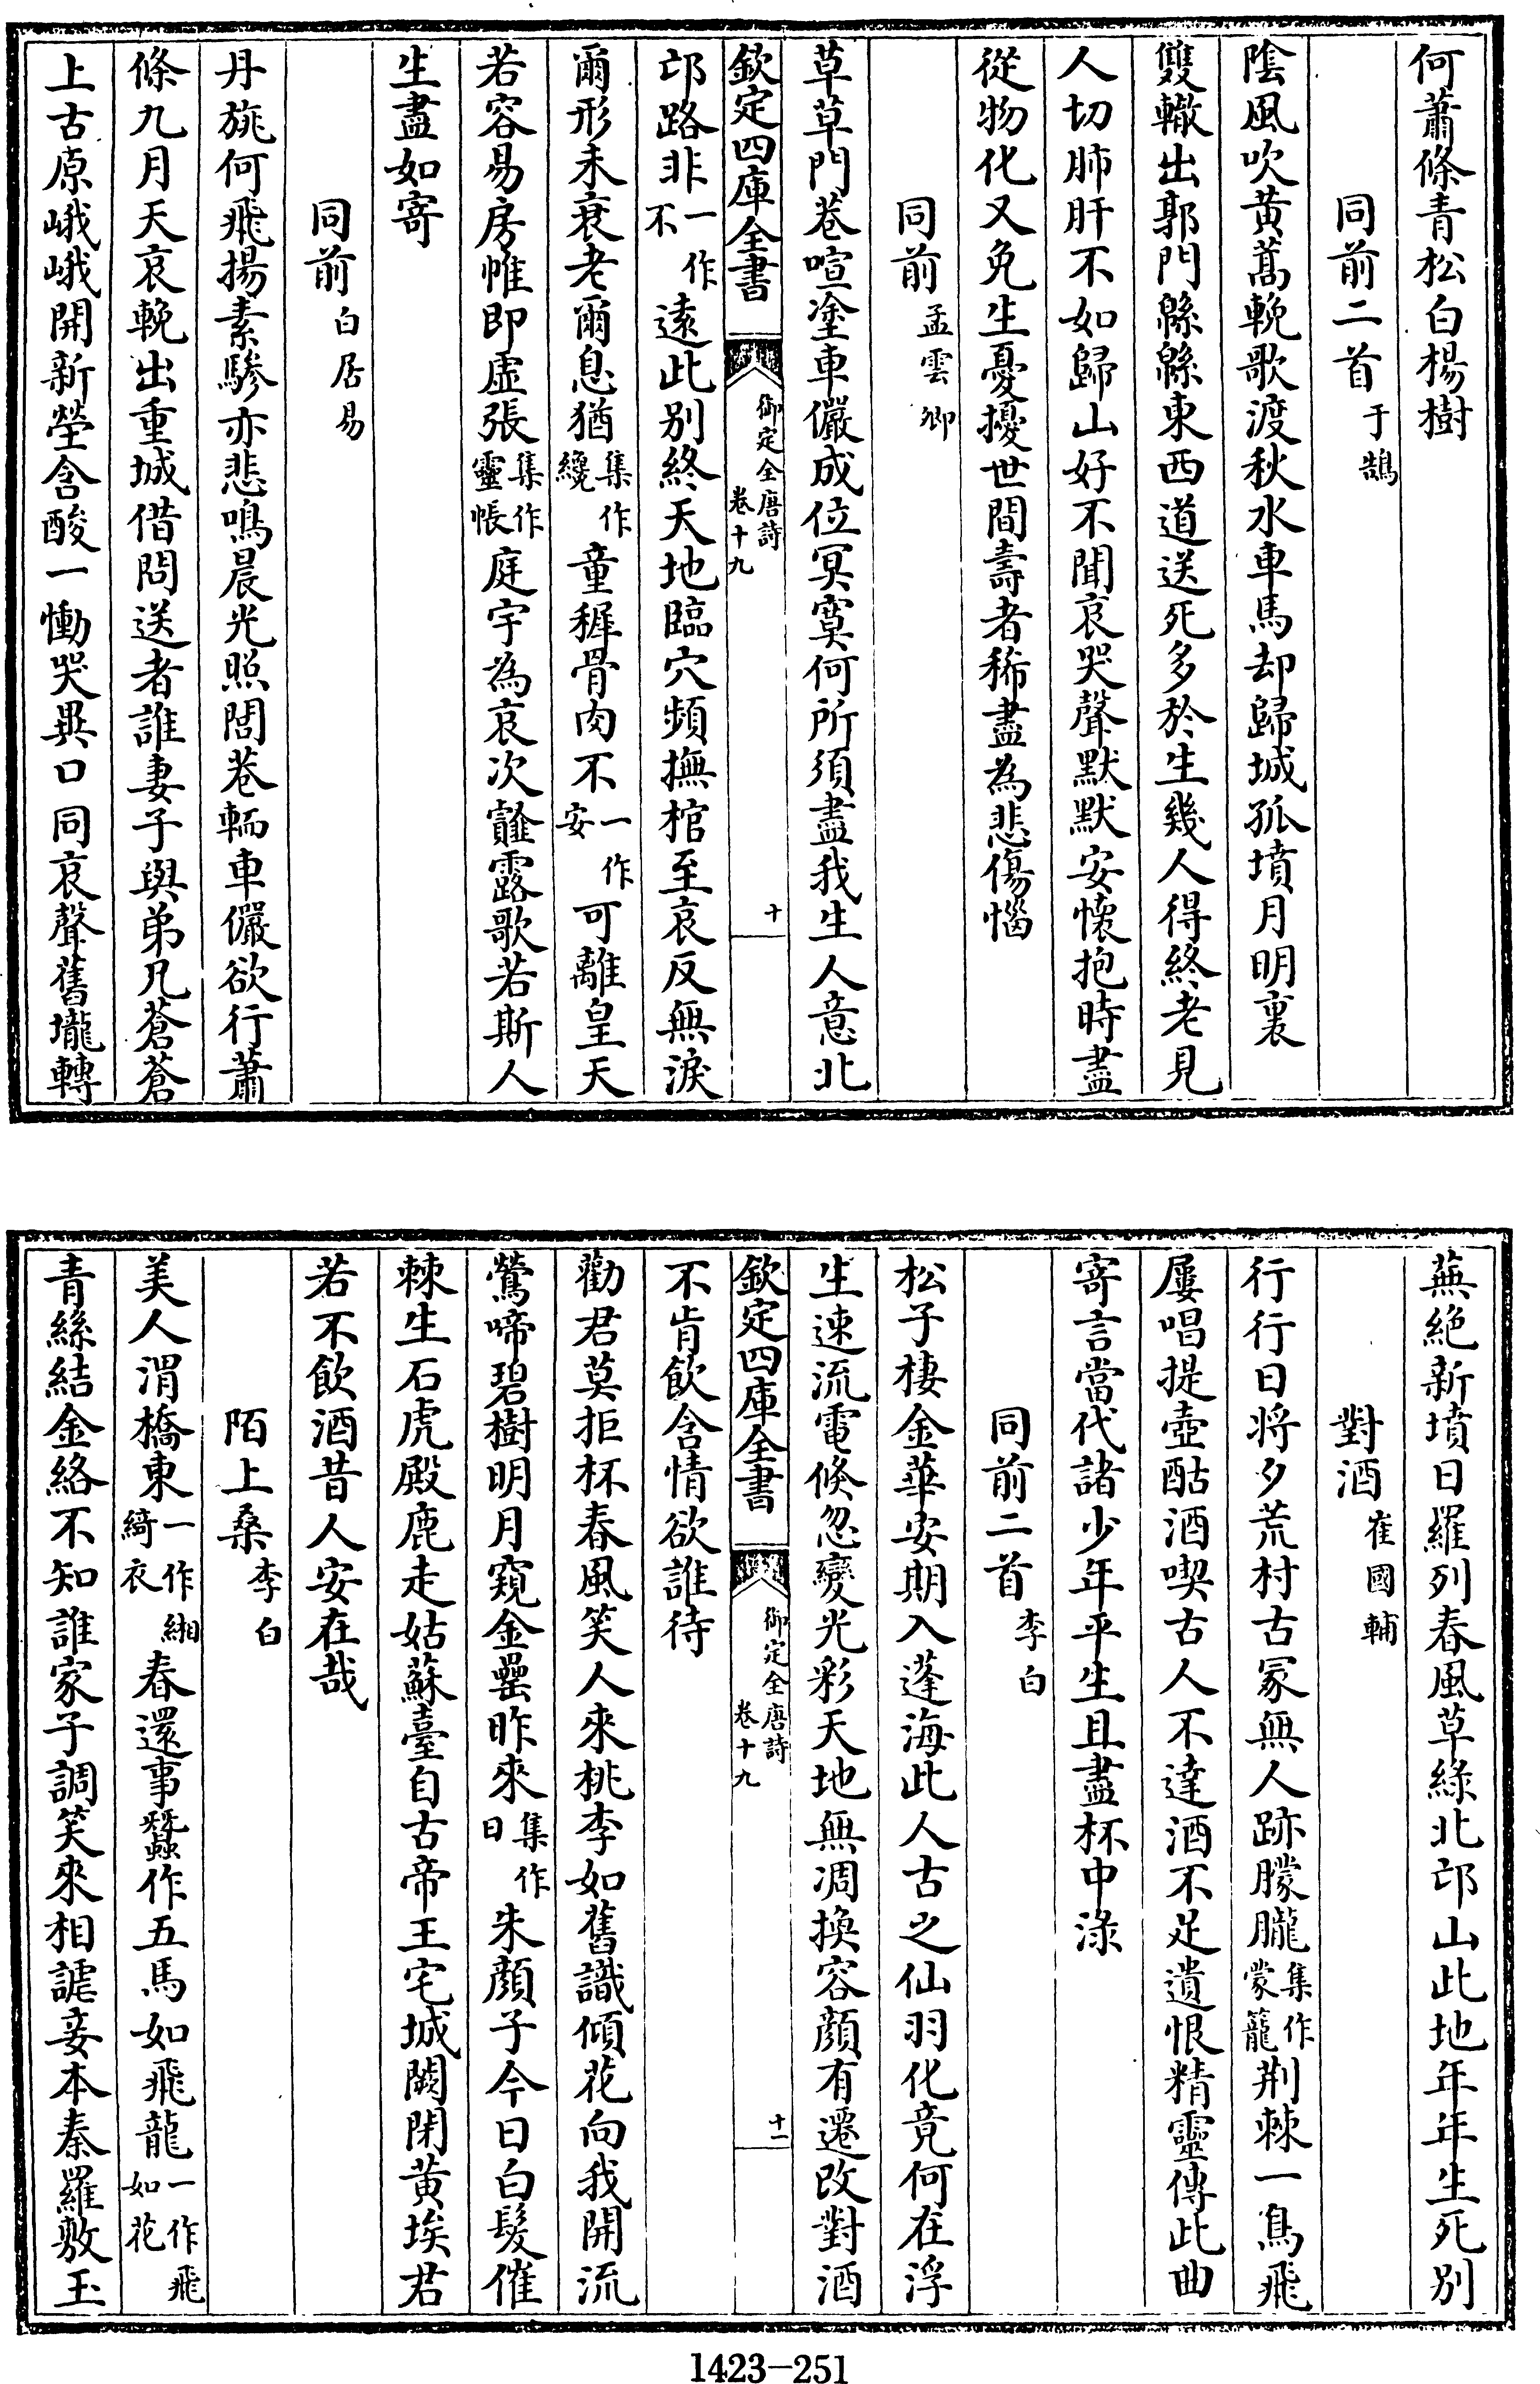 何蕭條青松白楊樹
同前二首于鵠
陰風吹黄蒿輓歌渡秋水車馬却歸城孤墳月明裏
雙轍出郭門緜緜東西道送死多於生幾人得終老見
人切肺肝不如歸山好不聞哀哭聲默默安懷抱時盡
從物化又免生憂擾世間壽者稀盡為悲傷惱
同前孟雲卿
草草門巷喧塗車儼成位冥寞何所須盡我生人意北
欽定四庫全書 御定全唐詩卷十九 十
邙路非一作不遠此别終天地臨穴頻撫棺至哀反無淚
爾形未衰老爾息猶集作纔童穉骨肉不一作安可離皇天
若容易房帷即虛張集作靈帳庭宇為哀次韰露歌若斯人
生盡如寄
同前白居易
丹旐何飛揚素驂亦悲鳴晨光照閭巷輀車儼欲行蕭
條九月天哀輓出重城借問送者誰妻子與弟兄蒼蒼
上古原峨峨開新塋含酸一慟哭異口同哀聲舊壠轉
蕪絶新墳日羅列春風草綠北邙山此地年年生死别
對酒崔國輔
行行日將夕荒村古冢無人跡朦朧集作蒙籠荆棘一鳥飛
屢唱提壺酤酒喫古人不達酒不足遺恨精靈傳此曲
寄言當代諸少年平生且盡杯中淥
同前二首李白
松子棲金華安期入蓬海此人古之仙羽化竟何在浮
生速流電倐忽變光彩天地無凋換容顏有遷改對酒
欽定四庫全書 御定全唐詩卷十九 十一
不肯飲含情欲誰待
勸君莫拒杯春風笑人來桃李如舊識傾花向我開流
鶯啼碧樹明月窺金罍昨來集作日朱顏子今日白髮催
棘生石虎殿鹿走姑蘇臺自古帝王宅城闕閉黄埃君
若不飲酒昔人安在哉
陌上桑李白
美人渭橋東一作緗綺衣春還事蠶作五馬如飛龍一作飛如花
青絲結金絡不知誰家子調笑來相謔妾本秦羅敷玉
1423-251